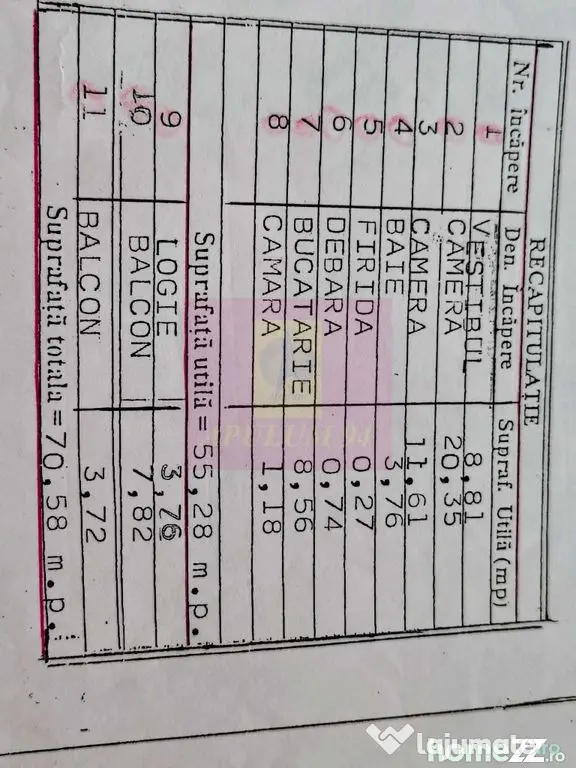 RECAPITULAȚIE
Nr. încăpere Den. Încăpere Supraf. Utilă (mp)
1 VESTIBUL 8,81
2 CAMERA 20,35
3 CAMERA 11,61
4 BAIE 3,76
5 FIRIDA 0,27
6 DEBARA 0,74
7 BUCATARIE 8,56
8 CAMARA 1,18
Suprafață utilă = 55,28 m.p.
9 LOGIE 3,76
10 BALCON 7,82
11 BALCON 3,72
Suprafață totala = 70,58 m.p.
APULUM 94
lajumate.ro
homezz.ro